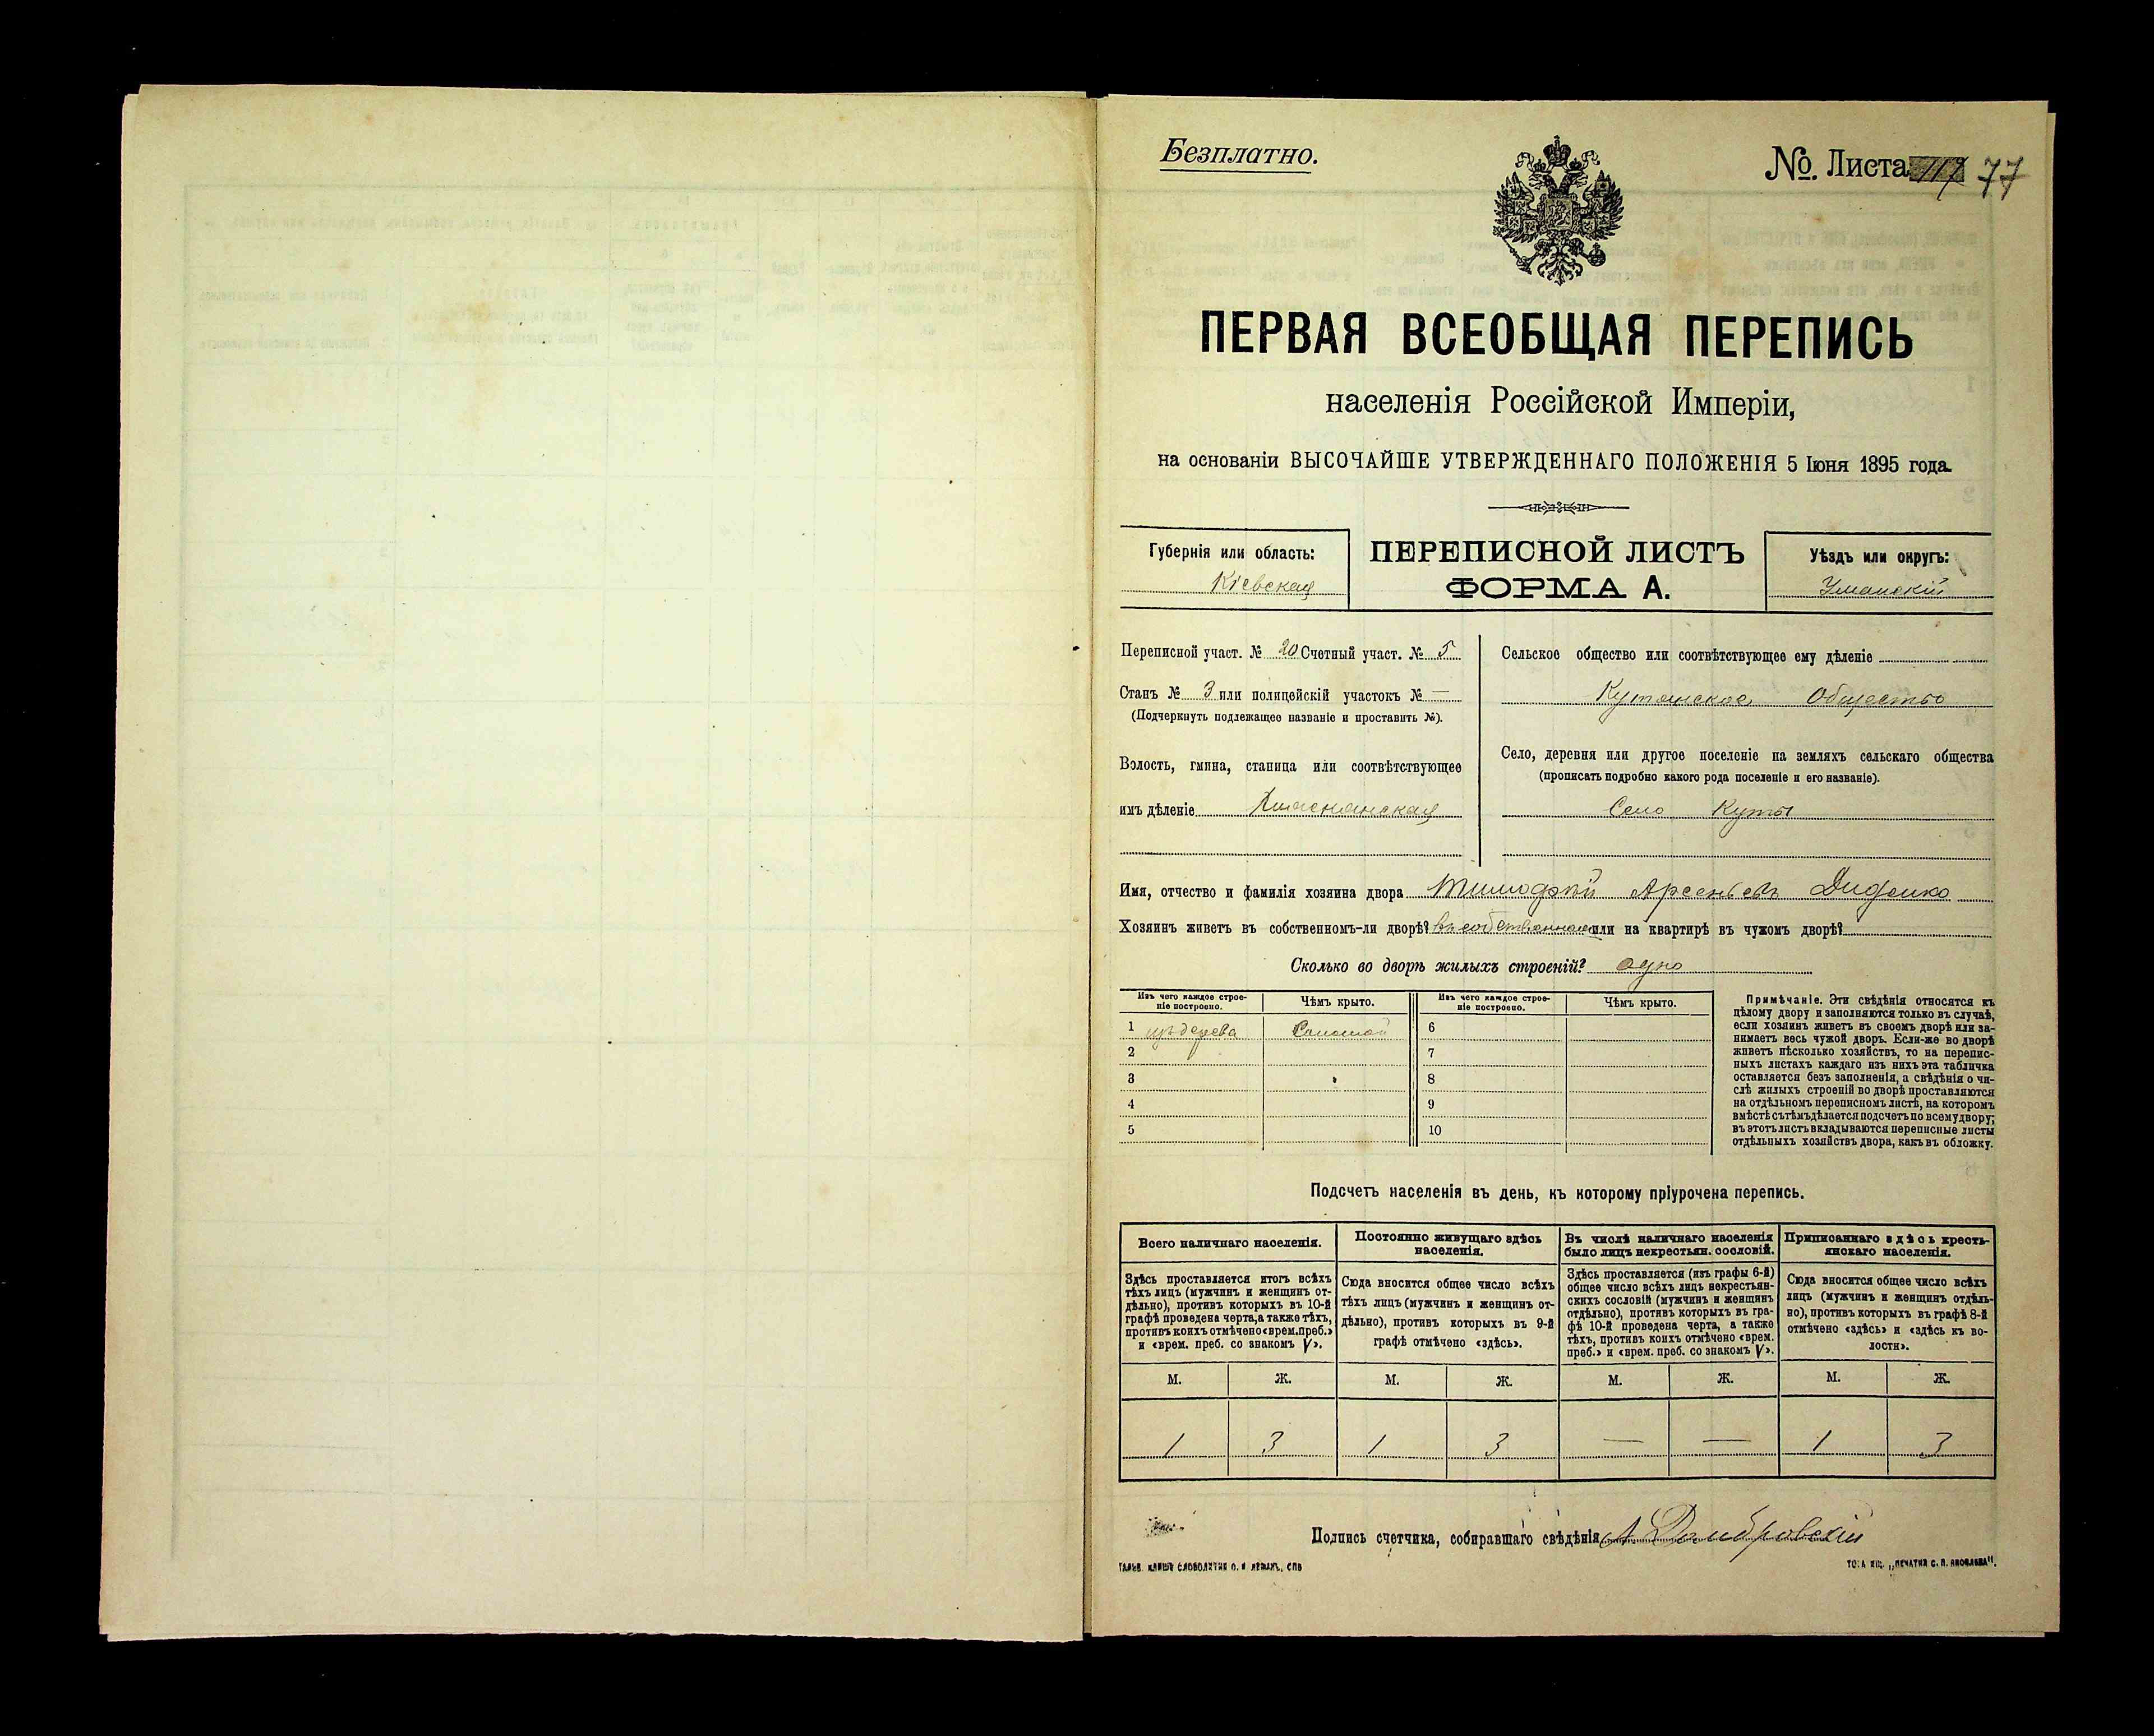 Безплатно.
№. Листа 77
ПЕРВАЯ ВСЕОБЩАЯ ПЕРЕПИСЬ
населенія Россійской Имперіи,
на основаніи ВЫСОЧАЙШЕ УТВЕРЖДЕННАГО ПОЛОЖЕНІЯ 5 Іюня 1895 года.
Губернія или область:
Кіевская
ПЕРЕПИСНОЙ ЛИСТЪ
ФОРМА А.
Уѣздъ или округъ:
Уманскій
Переписной участ. № 20 Счетный участ. № 5
Станъ № 3 или полицейскій участокъ № —
(Подчеркнуть подлежащее названіе и проставить №).
Волость, гмина, станица или соотвѣтствующее
имъ дѣленіе
Сельское общество или соотвѣтствующее ему дѣленіе
Кутянское Общество
Село, деревня или другое поселеніе на земляхъ сельскаго общества
(прописать подробно какого рода поселеніе и его названіе).
Село Куты
Имя, отчество и фамилія хозяина двора Тимофей Арсеньевъ Диденко
Хозяинъ живетъ въ собственномъ-ли дворѣ? въ собственномъ или на квартирѣ въ чужомъ дворѣ?
Сколько во дворѣ жилыхъ строеній? одно
Изъ чего каждое строе-
ніе построено.
Чѣмъ крыто.
Изъ чего каждое строе-
ніе построено.
Чѣмъ крыто.
1 изъ дерева Соломой 6
2 7
3 8
4 9
5 10
Примѣчаніе. Эти свѣдѣнія относятся къ
цѣлому двору и заполняются только въ случаѣ,
если хозяинъ живетъ въ своемъ дворѣ или за-
нимаетъ весь чужой дворъ. Если-же во дворѣ
живетъ нѣсколько хозяйствъ, то на перепис-
ныхъ листахъ каждаго изъ нихъ эта табличка
оставляется безъ заполненія, а свѣдѣнія о чи-
слѣ жилыхъ строеній во дворѣ проставляются
на отдѣльномъ переписномъ листѣ, на которомъ
вмѣстѣ съ тѣмъ дѣлается подсчетъ по всему двору;
въ этотъ листъ вкладываются переписные листы
отдѣльныхъ хозяйствъ двора, какъ въ обложку.
Подсчетъ населенія въ день, къ которому пріурочена перепись.
Всего наличнаго населенія.
Здѣсь проставляется итогъ всѣхъ
тѣхъ лицъ (мужчинъ и женщинъ от-
дѣльно), противъ которыхъ въ 10-й
графѣ проведена черта, а также тѣхъ,
противъ коихъ отмѣчено «врем. преб.»
и «врем. преб. со знакомъ V».
Постоянно живущаго здѣсь
населенія.
Сюда вносится общее число всѣхъ
тѣхъ лицъ (мужчинъ и женщинъ от-
дѣльно), противъ которыхъ въ 9-й
графѣ отмѣчено «здѣсь».
Въ числѣ наличнаго населенія
было лицъ некрестьян. сословій.
Здѣсь проставляется (изъ графы 6-й)
общее число всѣхъ лицъ некрестьян-
скихъ сословій (мужчинъ и женщинъ
отдѣльно), противъ которыхъ въ гра-
фѣ 10-й проведена черта, а также
тѣхъ, противъ коихъ отмѣчено «врем.
преб.» и «врем. преб. со знакомъ V».
Приписаннаго здѣсь кресть-
янскаго населенія.
Сюда вносится общее число всѣхъ
лицъ (мужчинъ и женщинъ отдѣль-
но), противъ которыхъ въ графѣ 8-й
отмѣчено «здѣсь» и «здѣсь къ во-
лости».
М. Ж. М. Ж. М. Ж. М. Ж.
1 3 1 3 — — 1 3
Подпись счетчика, собиравшаго свѣдѣнія А Домбровскій